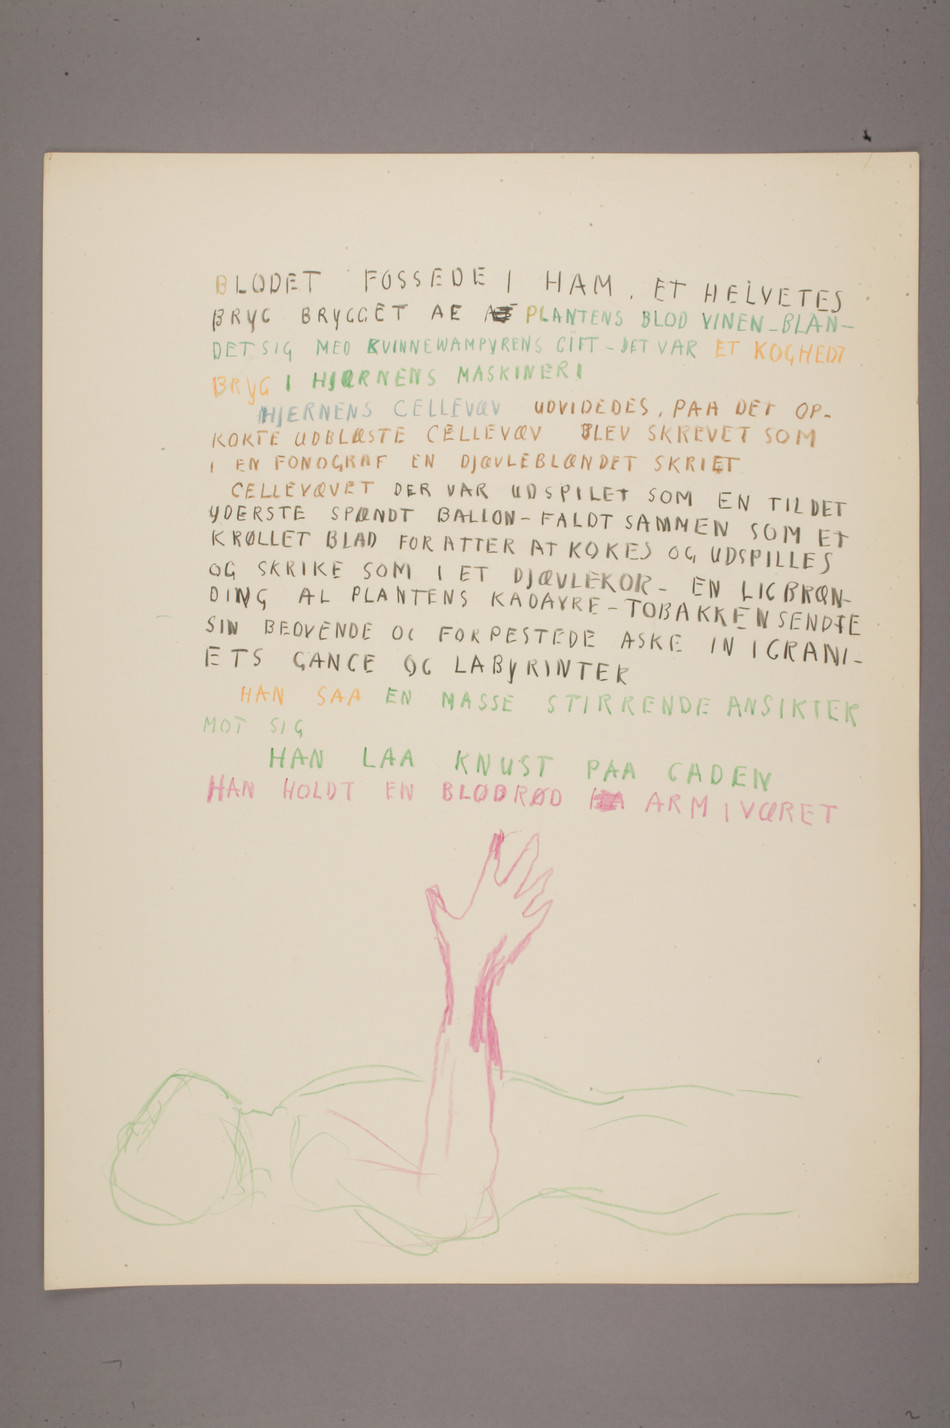 BLODET FOSSEDE I HAM. ET HELVETES
BRYG BRYGGET AF PLANTENS BLOD VINEN – BLAN–
DET SIG MED KVINNEWAMPYRENS GIFT – DET VAR ET KOGHEDT
BRYG I HJÆRNENS MASKINERI
HJERNENS CELLEVÆV UDVIDEDES, PAA DET OP–
KOKTE UDBLÆSTE CELLEVÆV BLEV SKREVET SOM
I EN FONOGRAF EN DJÆVLEBLÆNDET SKRIET
CELLEVÆVET DER VAR UDSPILET SOM EN TIL DET
YDERSTE SPÆNDT BALLON – FALDT SAMMEN SOM ET
KRØLLET BLAD FOR ATTER AT KOKES OG UDSPILLES
OG SKRIKE SOM I ET DJÆVLEKOR – EN LIGBRÆN–
DING AL PLANTENS KADAVRE – TOBAKKEN SENDTE
SIN BEDVENDE OG FORPESTEDE ASKE IN I GRANI–
ETS GANGE OG LABYRINTER
HAN SAA EN MASSE STIRRENDE ANSIKTER
MOT SIG
HAN LAA KNUST PAA GADEN
HAN HOLDT EN BLODRØD ARM I VÆRET